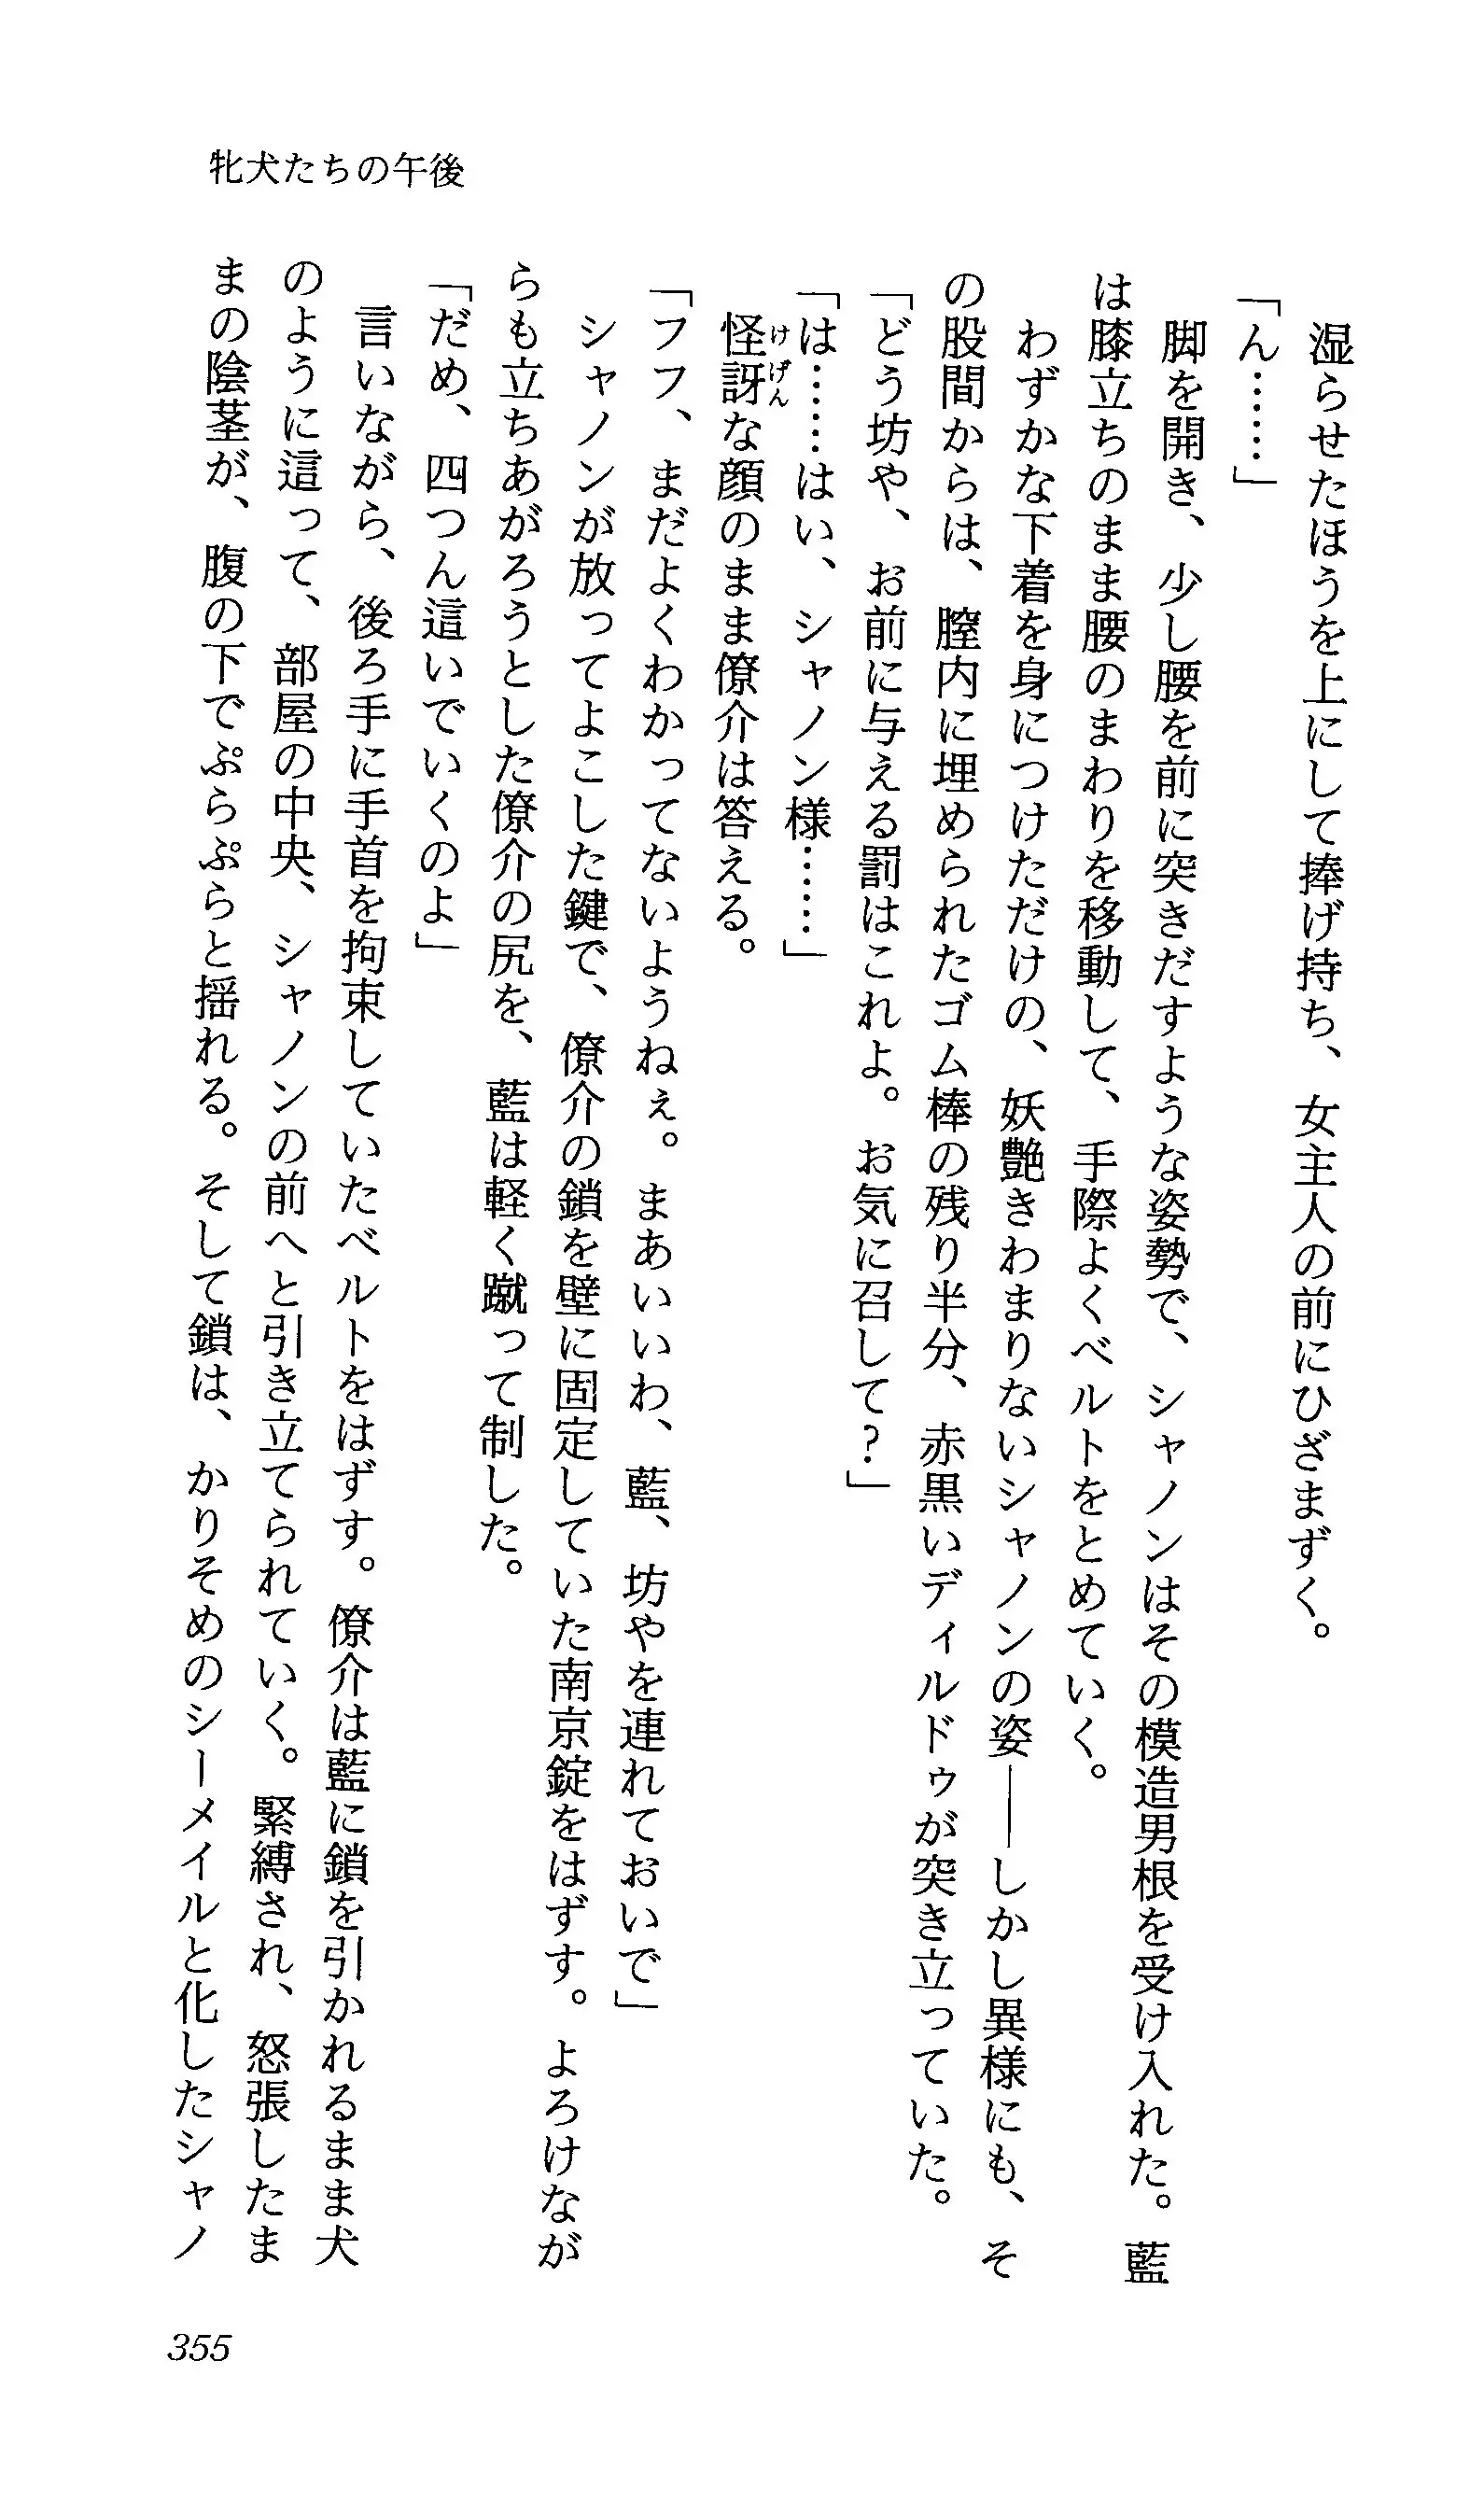 牝犬たちの午後
湿らせたほうを上にして捧げ持ち、女主人の前にひざまずく。
「ん……」
脚を開き、少し腰を前に突きだすような姿勢で、シャノンはその模造男根を受け入れた。藍
は膝立ちのまま腰のまわりを移動して、手際よくベルトをとめていく。
わずかな下着を身につけただけの、妖艶きわまりないシャノンの姿――しかし異様にも、そ
の股間からは、膣内に埋められたゴム棒の残り半分、赤黒いディルドゥが突き立っていた。
「どう坊や、お前に与える罰はこれよ。お気に召して?」
「は……はい、シャノン様……」
怪訝な顔のまま僚介は答える。
けげん
「フフ、まだよくわかってないようねぇ。まあいいわ、藍、坊やを連れておいで」
シャノンが放ってよこした鍵で、僚介の鎖を壁に固定していた南京錠をはずす。よろけなが
らも立ちあがろうとした僚介の尻を、藍は軽く蹴って制した。
「だめ、四つん這いでいくのよ」
言いながら、後ろ手に手首を拘束していたベルトをはずす。僚介は藍に鎖を引かれるまま犬
のように這って、部屋の中央、シャノンの前へと引き立てられていく。緊縛され、怒張したま
まの陰茎が、腹の下でぷらぷらと揺れる。そして鎖は、かりそめのシーメイルと化したシャノ
355